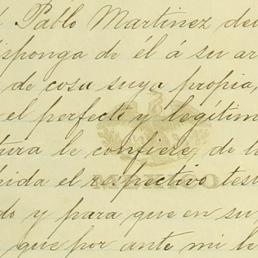 Pablo Martinez de
isponga de él á su ar
de cosa suya propia,
el perfecto y legítim
tura le confiere, de
bida el respectivo tes
do y para que en su
que por ante mi
MEXICO